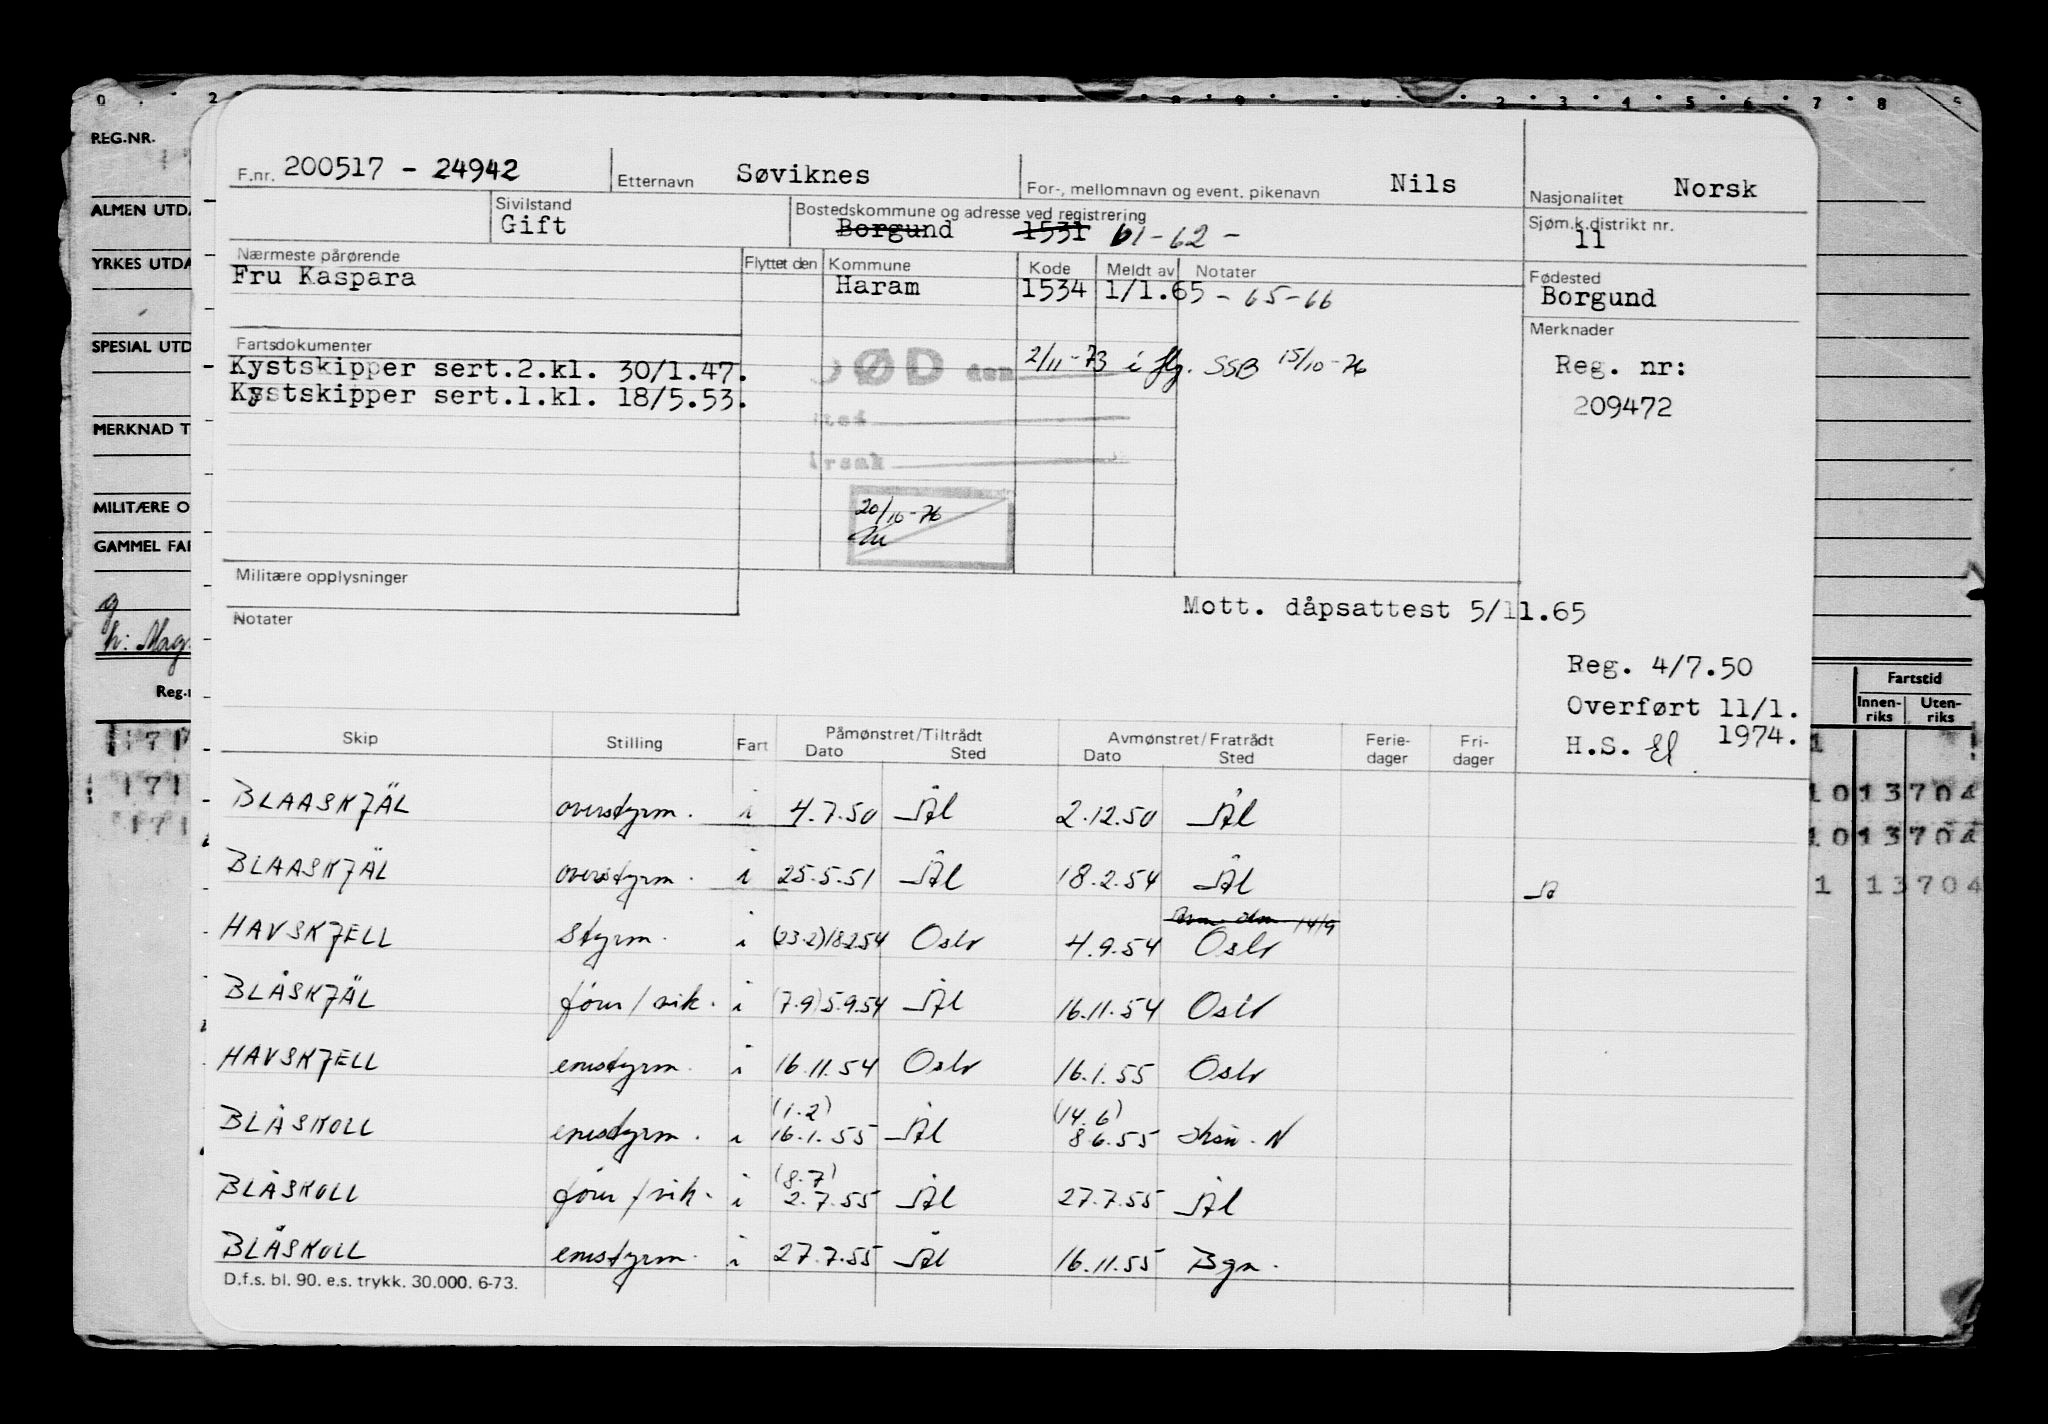 REG.NR.
F.nr. 200517 - 24942 Etternavn Søviknes For-, mellomnavn og event. pikenavn Nils Nasjonalitet Norsk
ALMEN UTDA
Sivilstand Gift Bostedskommune og adresse ved registrering Borgund 1531 61-62- Sjøm.k.distrikt nr. 11
YRKES UTDA
Nærmeste pårørende Flyttet den Kommune Kode Meldt av Notater Fødested
Fru Kaspara Haram 1534 1/1.65 - 65-66 Borgund
Merknader
SPESIAL UTD
Fartsdokumenter
Kystskipper sert.2.kl. 30/1.47. DØD den 2/11-73 i flg. SSB 15/10-76 Reg. nr:
Kystskipper sert.1.kl. 18/5.53. 209472
sted
MERKNAD T
årsak
MILITÆRE O
20/10-76
GAMMEL FAR
Militære opplysninger
Notater Mott. dåpsattest 5/11.65
Reg. 4/7.50
Overført 11/1.
1974.
H.S.
Fartstid
Innen-riks Uten-riks
Skip Stilling Fart Påmønstret/Tiltrådt Dato Sted Avmønstret/Fratrådt Dato Sted Ferie-dager Fri-dager
BLAASKJÄL overstyrm. i 4.7.50 Ål 2.12.50 Ål
BLAASKJÄL overstyrm. i 25.5.51 Ål 18.2.54 Ål
HAVSKJELL Styrm. i (23.2) 18.2.54 Oslo 4.9.54 Oslo
BLÅSKJÄL förer/vik. i (7.9) 5.9.54 Ål 16.11.54 Oslo
HAVSKJELL enestyrm. i 16.11.54 Oslo 16.1.55 Oslo
BLÅSKOLL enestyrm. i (1.2) 16.1.55 Ål (14.6) 8.6.55 Khsn. N
BLÅSKOLL förer/vik. i (8.7) 2.7.55 Ål 27.7.55 Ål
BLÅSKOLL enestyrm. i 27.7.55 Ål 16.11.55 Bgn.
D.f.s. bl. 90. e.s. trykk. 30.000. 6-73.